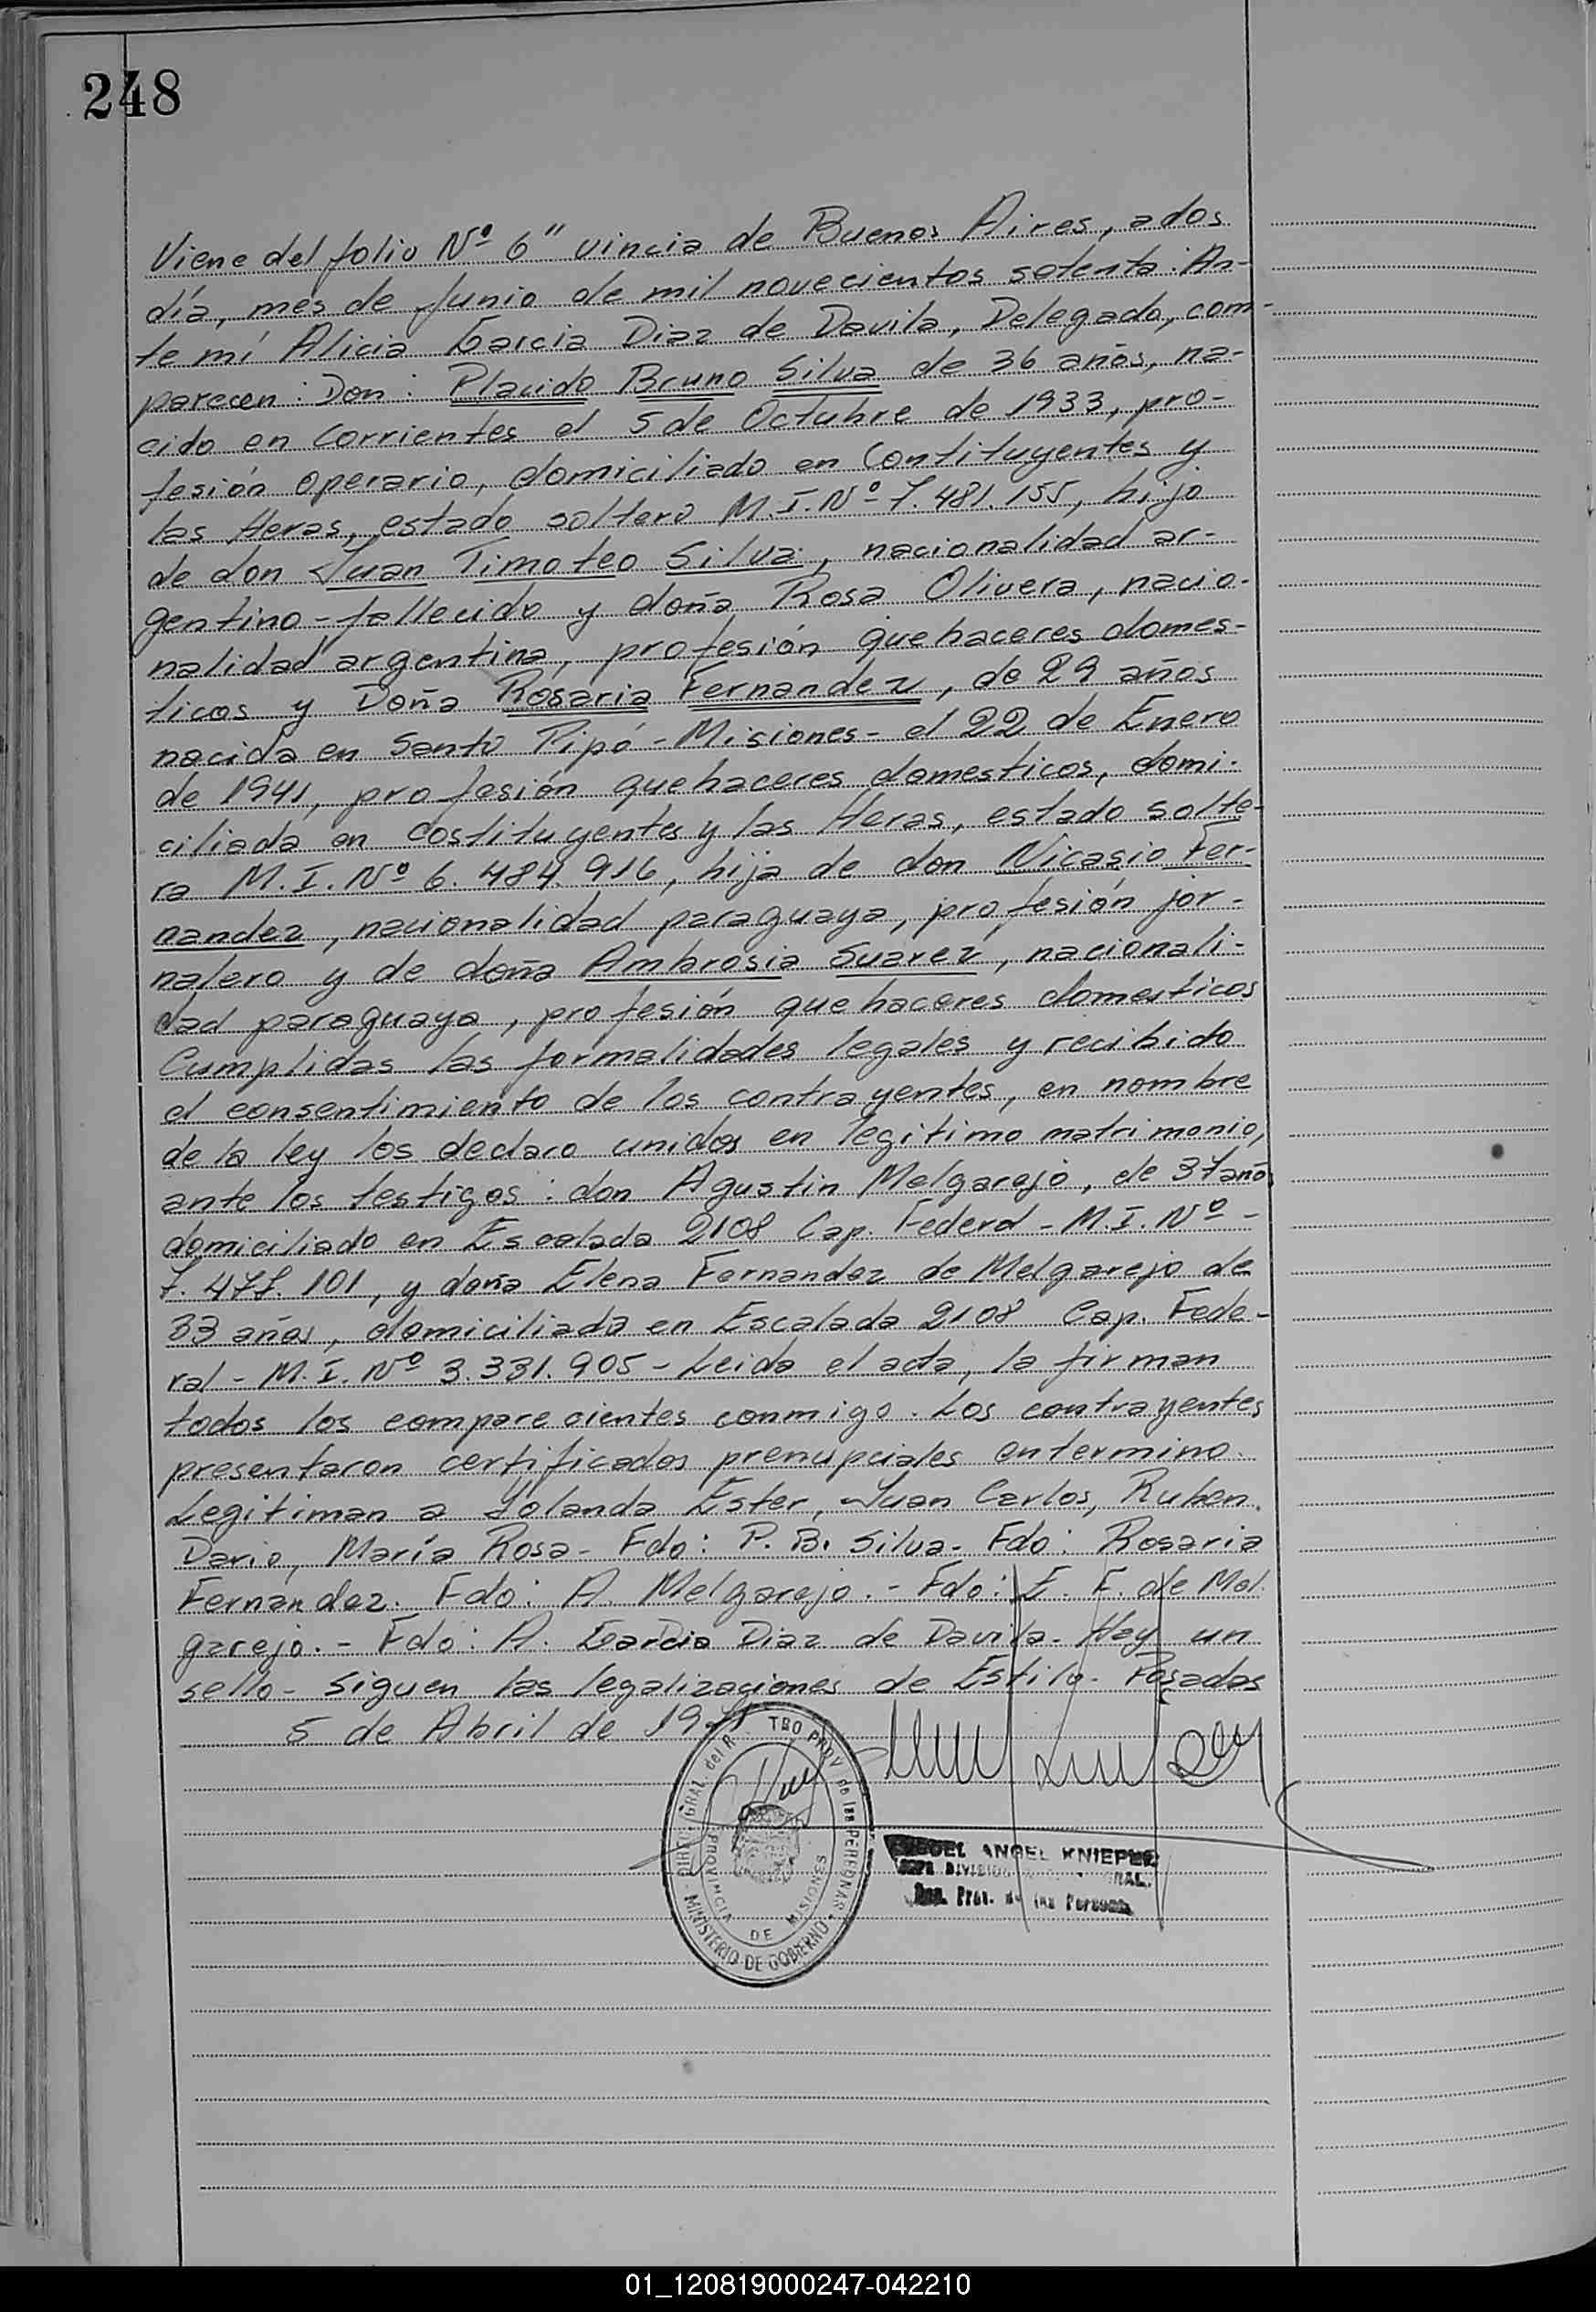 248
Viene del folio Nº 6" vincia de Buenos Aires, a dos
día, mes de Junio de mil novecientos setenta. An-
te mí Alicia Garcia Diaz de Davila, Delegada, com-
parecen: Don: Placido Bruno Silva de 36 años, na-
cido en Corrientes el 5 de Octubre de 1933, pro-
fesión operario, domiciliado en Contituyentes y
las Heras, estado soltero M.I. Nº 7.481.155, hijo
de don Juan Timoteo Silva, nacionalidad ar-
gentino - fallecido y doña Rosa Olivera, nacio-
nalidad argentina, profesión quehaceres domes-
ticos y Doña Rosaria Fernandez, de 29 años
nacida en Santo Pipó - Misiones - el 22 de Enero
de 1941, profesión quehaceres domesticos, domi-
ciliada en Costituyentes y las Heras, estado solte-
ra M.I. Nº 6.484.916, hija de don Nicasio Fer-
nandez, nacionalidad paraguaya, profesión jor-
nalero y de doña Ambrosia Suarez, nacionali-
dad paraguaya, profesión quehaceres domesticos
Cumplidas las formalidades legales y recibido
el consentimiento de los contrayentes, en nombre
de la ley los declaro unidos en legitimo matrimonio,
ante los testigos: don Agustin Melgarejo, de 37 años
domiciliado en Escalada 2108 Cap. Federal - M.I. Nº -
7.477.101, y doña Elena Fernandez de Melgarejo de
33 años, domiciliada en Escalada 2108 Cap. Fede-
ral - M.I. Nº 3.331.905 - Leida el acta, la firman
todos los comparecientes conmigo. Los contrayentes
presentaron certificados prenupciales en termino.
Legitiman a Yolanda Ester, Juan Carlos, Ruben
Dario, María Rosa - Fdo: P. B. Silva - Fdo: Rosaria
Fernandez. Fdo: A. Melgarejo. - Fdo: E. F. de Mel-
garejo. - Fdo: A. Garcia Diaz de Davila. Hay un
sello - siguen las legalizaciones de Estilo. Posadas
5 de Abril de 1971
DIREC. GRAL. del R. TRO PROV de las PERSONAS
PROVINCIA DE MISIONES
MINISTERIO DE GOBIERNO
ANGEL KNIEPLE
JEFE DIVISION GRAL.
Reg. Prov. de las Personas
01_120819000247-042210